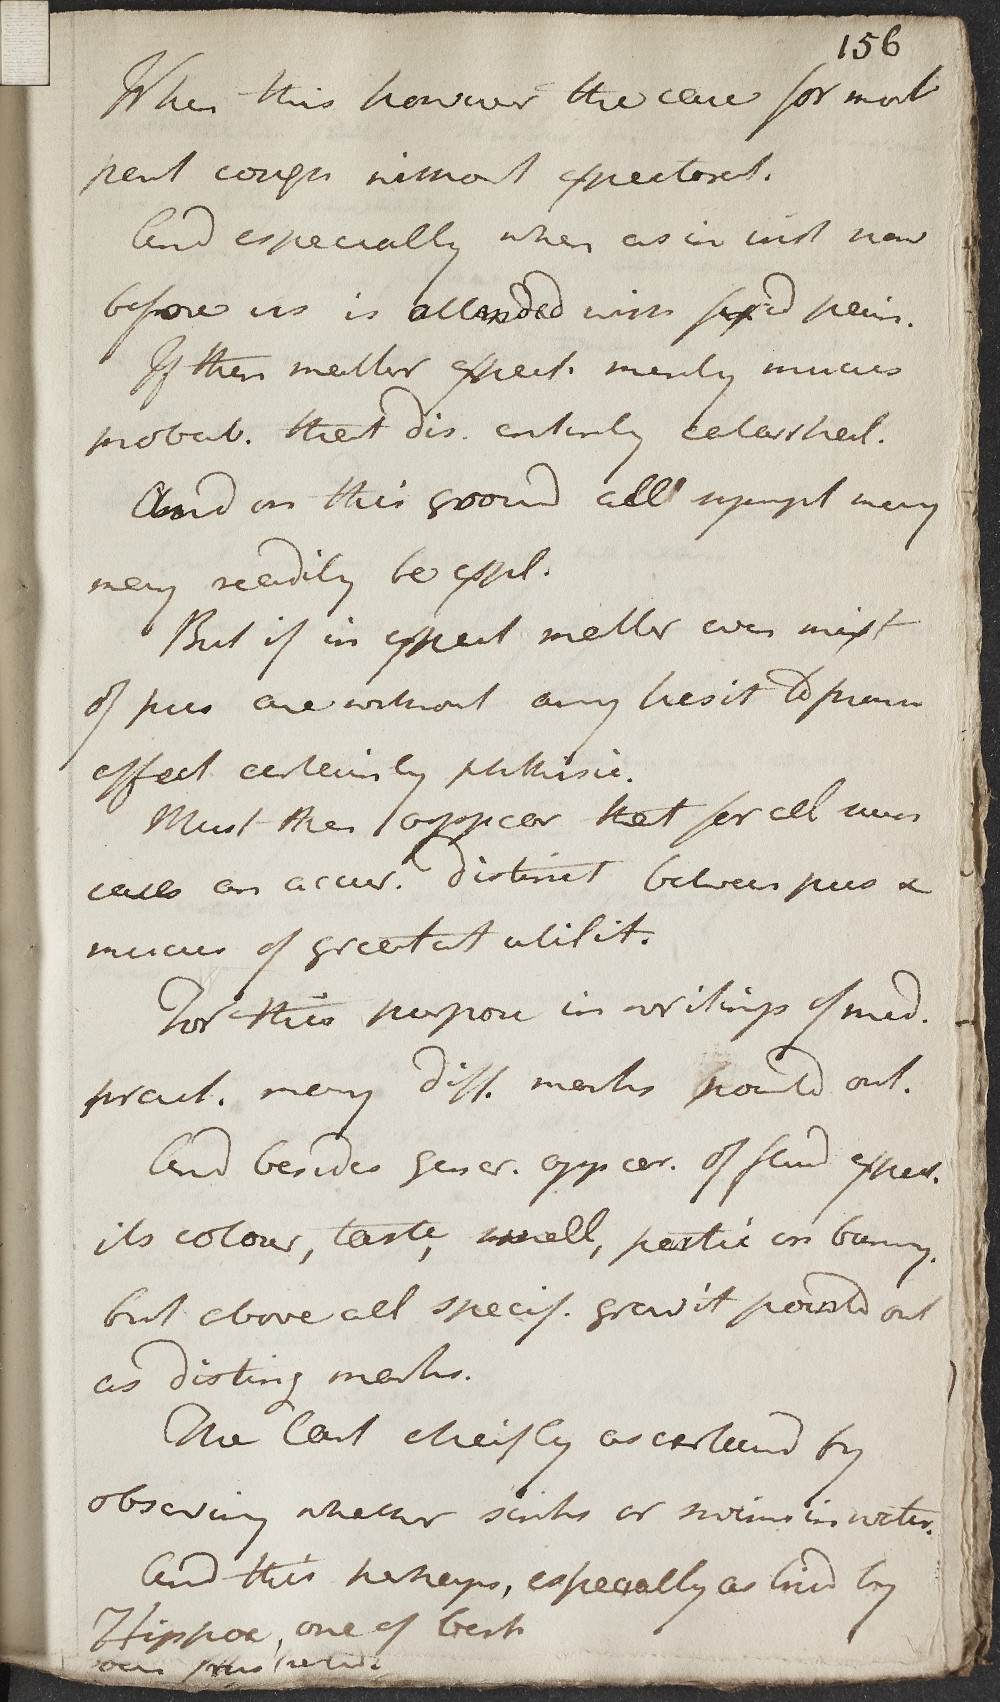 156
When this however the case for most
part cough without expectorat.
And especially when as in inst now
before us is attended with fix'd pain.
If then matter expect. merely mucus
probab. that dis. entirely catarrhal.
And on this ground all sympt many
may readily be expl.
But if in expect matter even mixt
of pus are without any hesit to
affect certainly phthisic.
Must then appear that for all such
cases an accur. distinct between pus &
mucus of greatest utilit.
For this purpose in writings of med.
pract. many diff. marks pointd out.
And besides gener. appear. of fluid expect.
its colour, taste, smell, partic on burng.
but above all specif. gravit pointd out
as disting marks.
The last cheifly ascertaind by
observing whether sinks or swims in water.
And this perhaps, especially as tried by
Hippoc, one of best